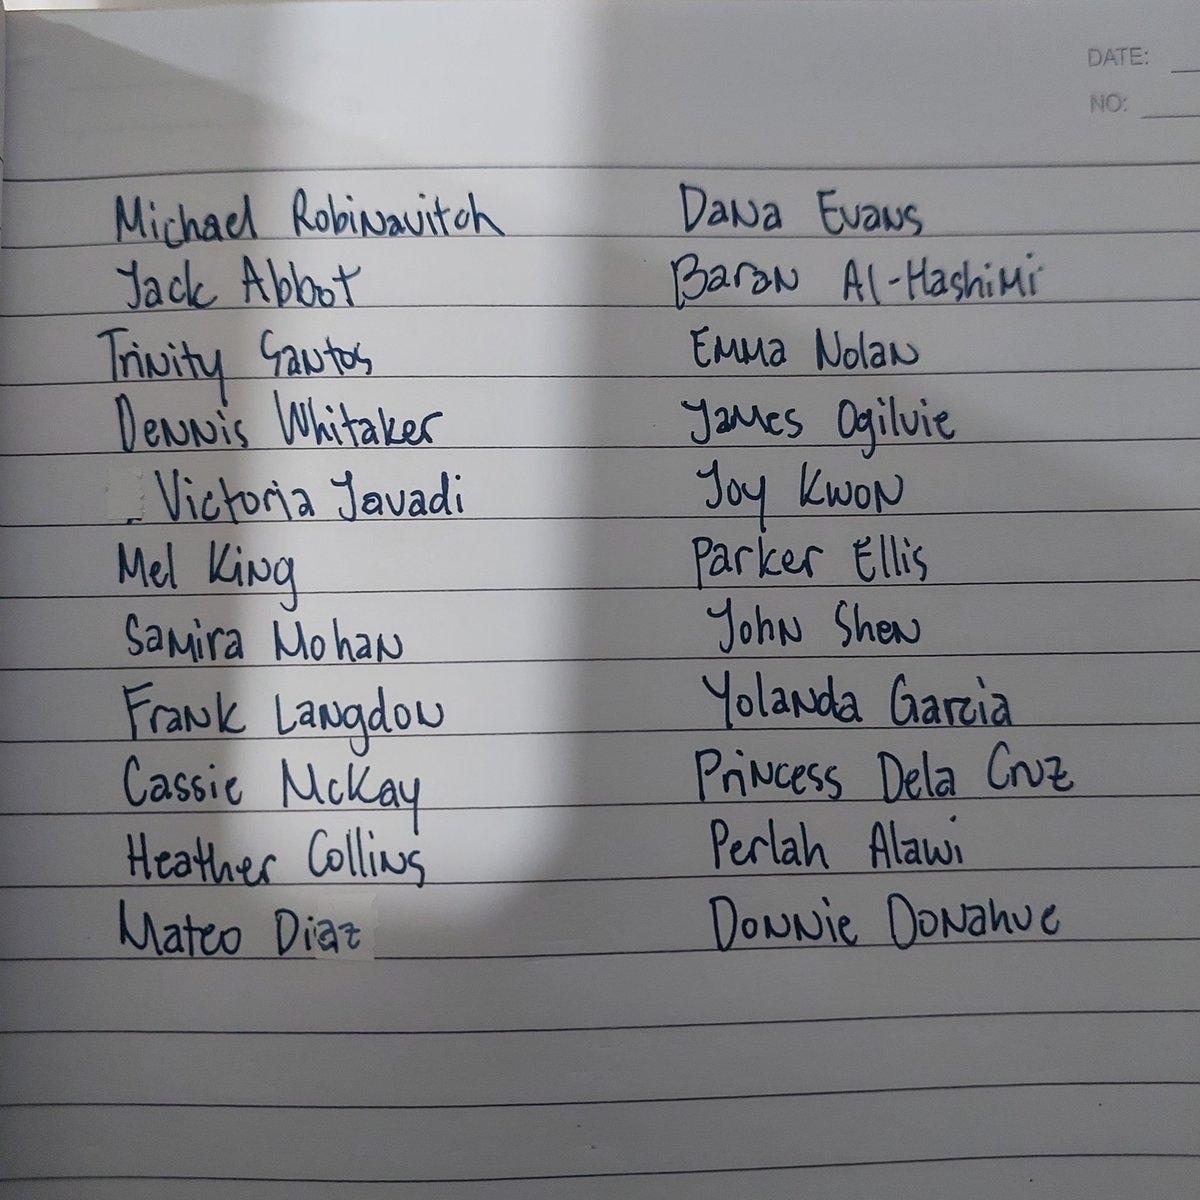 DATE:
NO:
Michael Robinavitch
Jack Abbot
Trinity Santos
Dennis Whitaker
Victoria Javadi
Mel King
Samira Mohan
Frank Langdon
Cassie McKay
Heather Collins
Mateo Diaz
Dana Evans
Baran Al-Hashimi
Emma Nolan
James Ogilvie
Joy Kwon
Parker Ellis
John Shen
Yolanda Garcia
Princess Dela Cruz
Perlah Alawi
Donnie Donahue